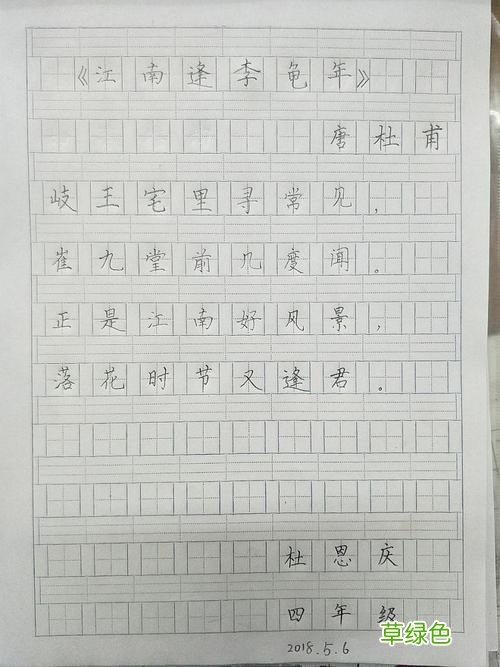 《江南逢李龟年》
唐杜甫
岐王宅里寻常见，
崔九堂前几度闻。
正是江南好风景，
落花时节又逢君。
杜恩庆
四年级
2018.5.6
草绿色